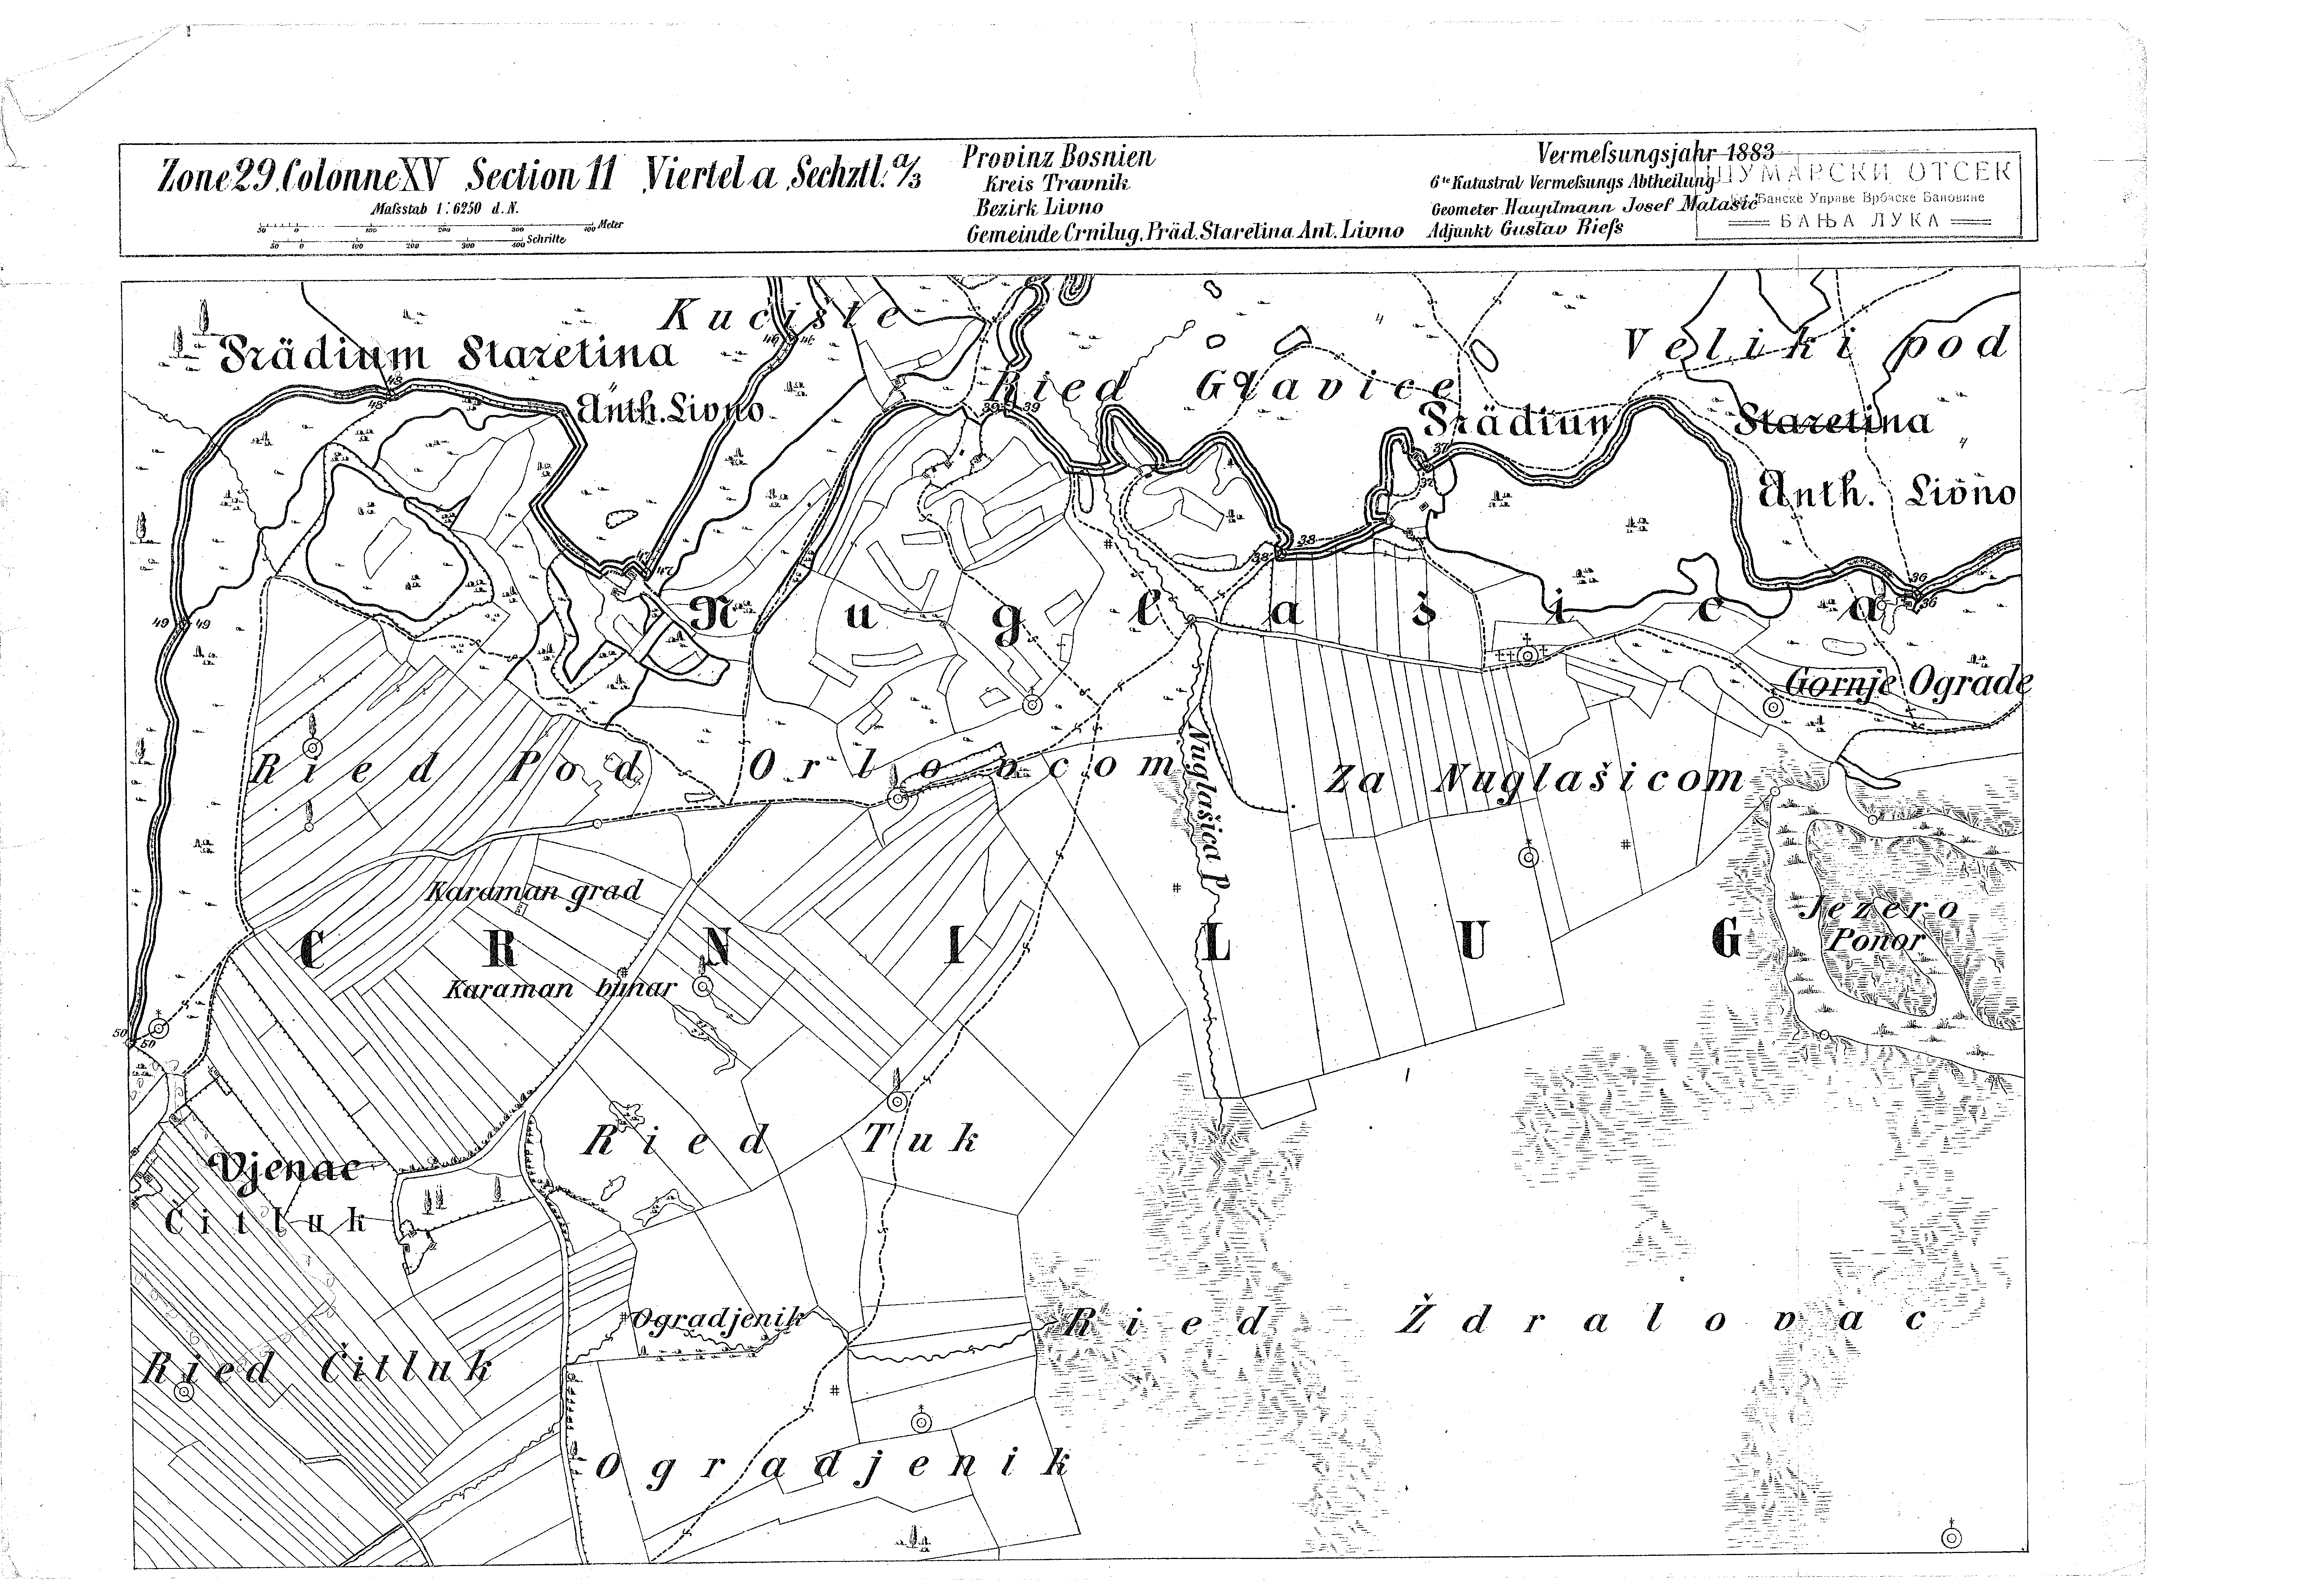 Zone 29. Colonne XV Section 11 Viertel a Sechztl. a/3
Maſsstab 1:6250 d. N.
50 0 100 200 300 400 Meter
50 0 100 200 300 400 Schritte
Provinz Bosnien
Kreis Travnik
Bezirk Livno
Gemeinde Crnilug, Präd. Staretina Ant. Livno
Vermeſsungsjahr 1883
6te Katastral Vermeſsungs Abtheilung
Geometer Hauptmann Josef Matasić
Adjunkt Gustav Rieſs
ШУМАРСКИ ОТСЕК
Банске Управе Врбаске Бановине
БАЊА ЛУКА
Kucište
Veliki pod
Prädium Staretina
Ried Glavice
Anth. Livno.
Prädium Staretina
Anth. Livno
48
48
39 39
47
38
38
36
36
49 49
Nuglašica
Gornje Ograde
Ried Pod Orlovcom
Za Nuglašicom
Nuglašica P.
Karaman grad
Jezero
Ponor
CRNI LUG
Karaman bunar
50
50
Ried Tuk
Vjenac
Čitluk
Ogradjenik
Ried Ždralovac
Ried Čitluk
Ogradjenik